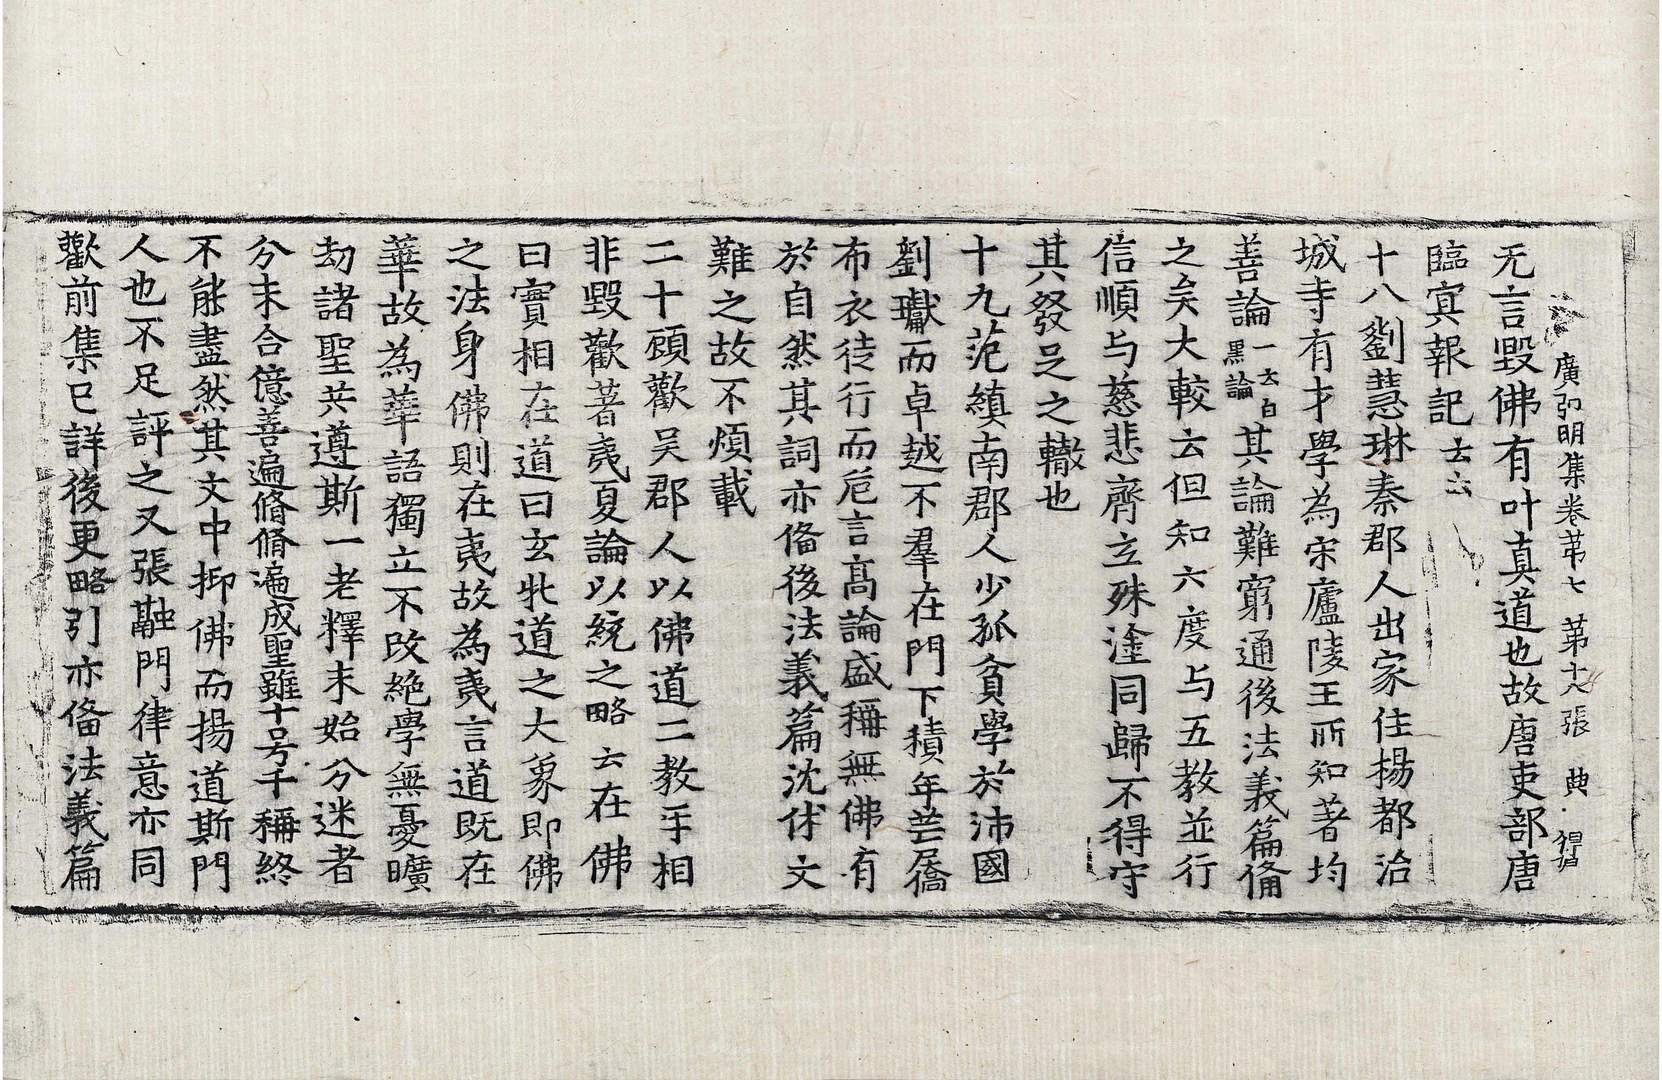 廣弘明集卷苐七 苐十八張 典
无言毀佛有叶真道也故唐吏部唐
臨㝠報記云云
十八劉慧琳秦郡人出家住揚都治
城寺有才學為宋廬陵王所知著均
善論一云白黑論其論難窮通後法義篇俻
之矣大較云但知六度与五教並行
信順与慈悲齊立殊塗同歸不得守
其發足之轍也
十九范縝南郡人少孤貧學於沛國
劉瓛而卓越不羣在門下積年芒屩
布衣徒行而危言髙論盛稱無佛有
於自然其詞亦俻後法義篇沈休文
難之故不煩載
二十顧歡吴郡人以佛道二教㸦相
非毀歡著夷夏論以統之略云在佛
曰實相在道曰玄牝道之大象即佛
之法身佛則在夷故為夷言道既在
華故為華語獨立不改絶學無憂曠
劫諸聖共遵斯一老釋未始分迷者
分未合億善遍脩脩遍成聖雖十号千稱終
不能盡然其文中抑佛而揚道斯門
人也不足評之又張融門律意亦同
歡前集已詳後更略引亦俻法義篇